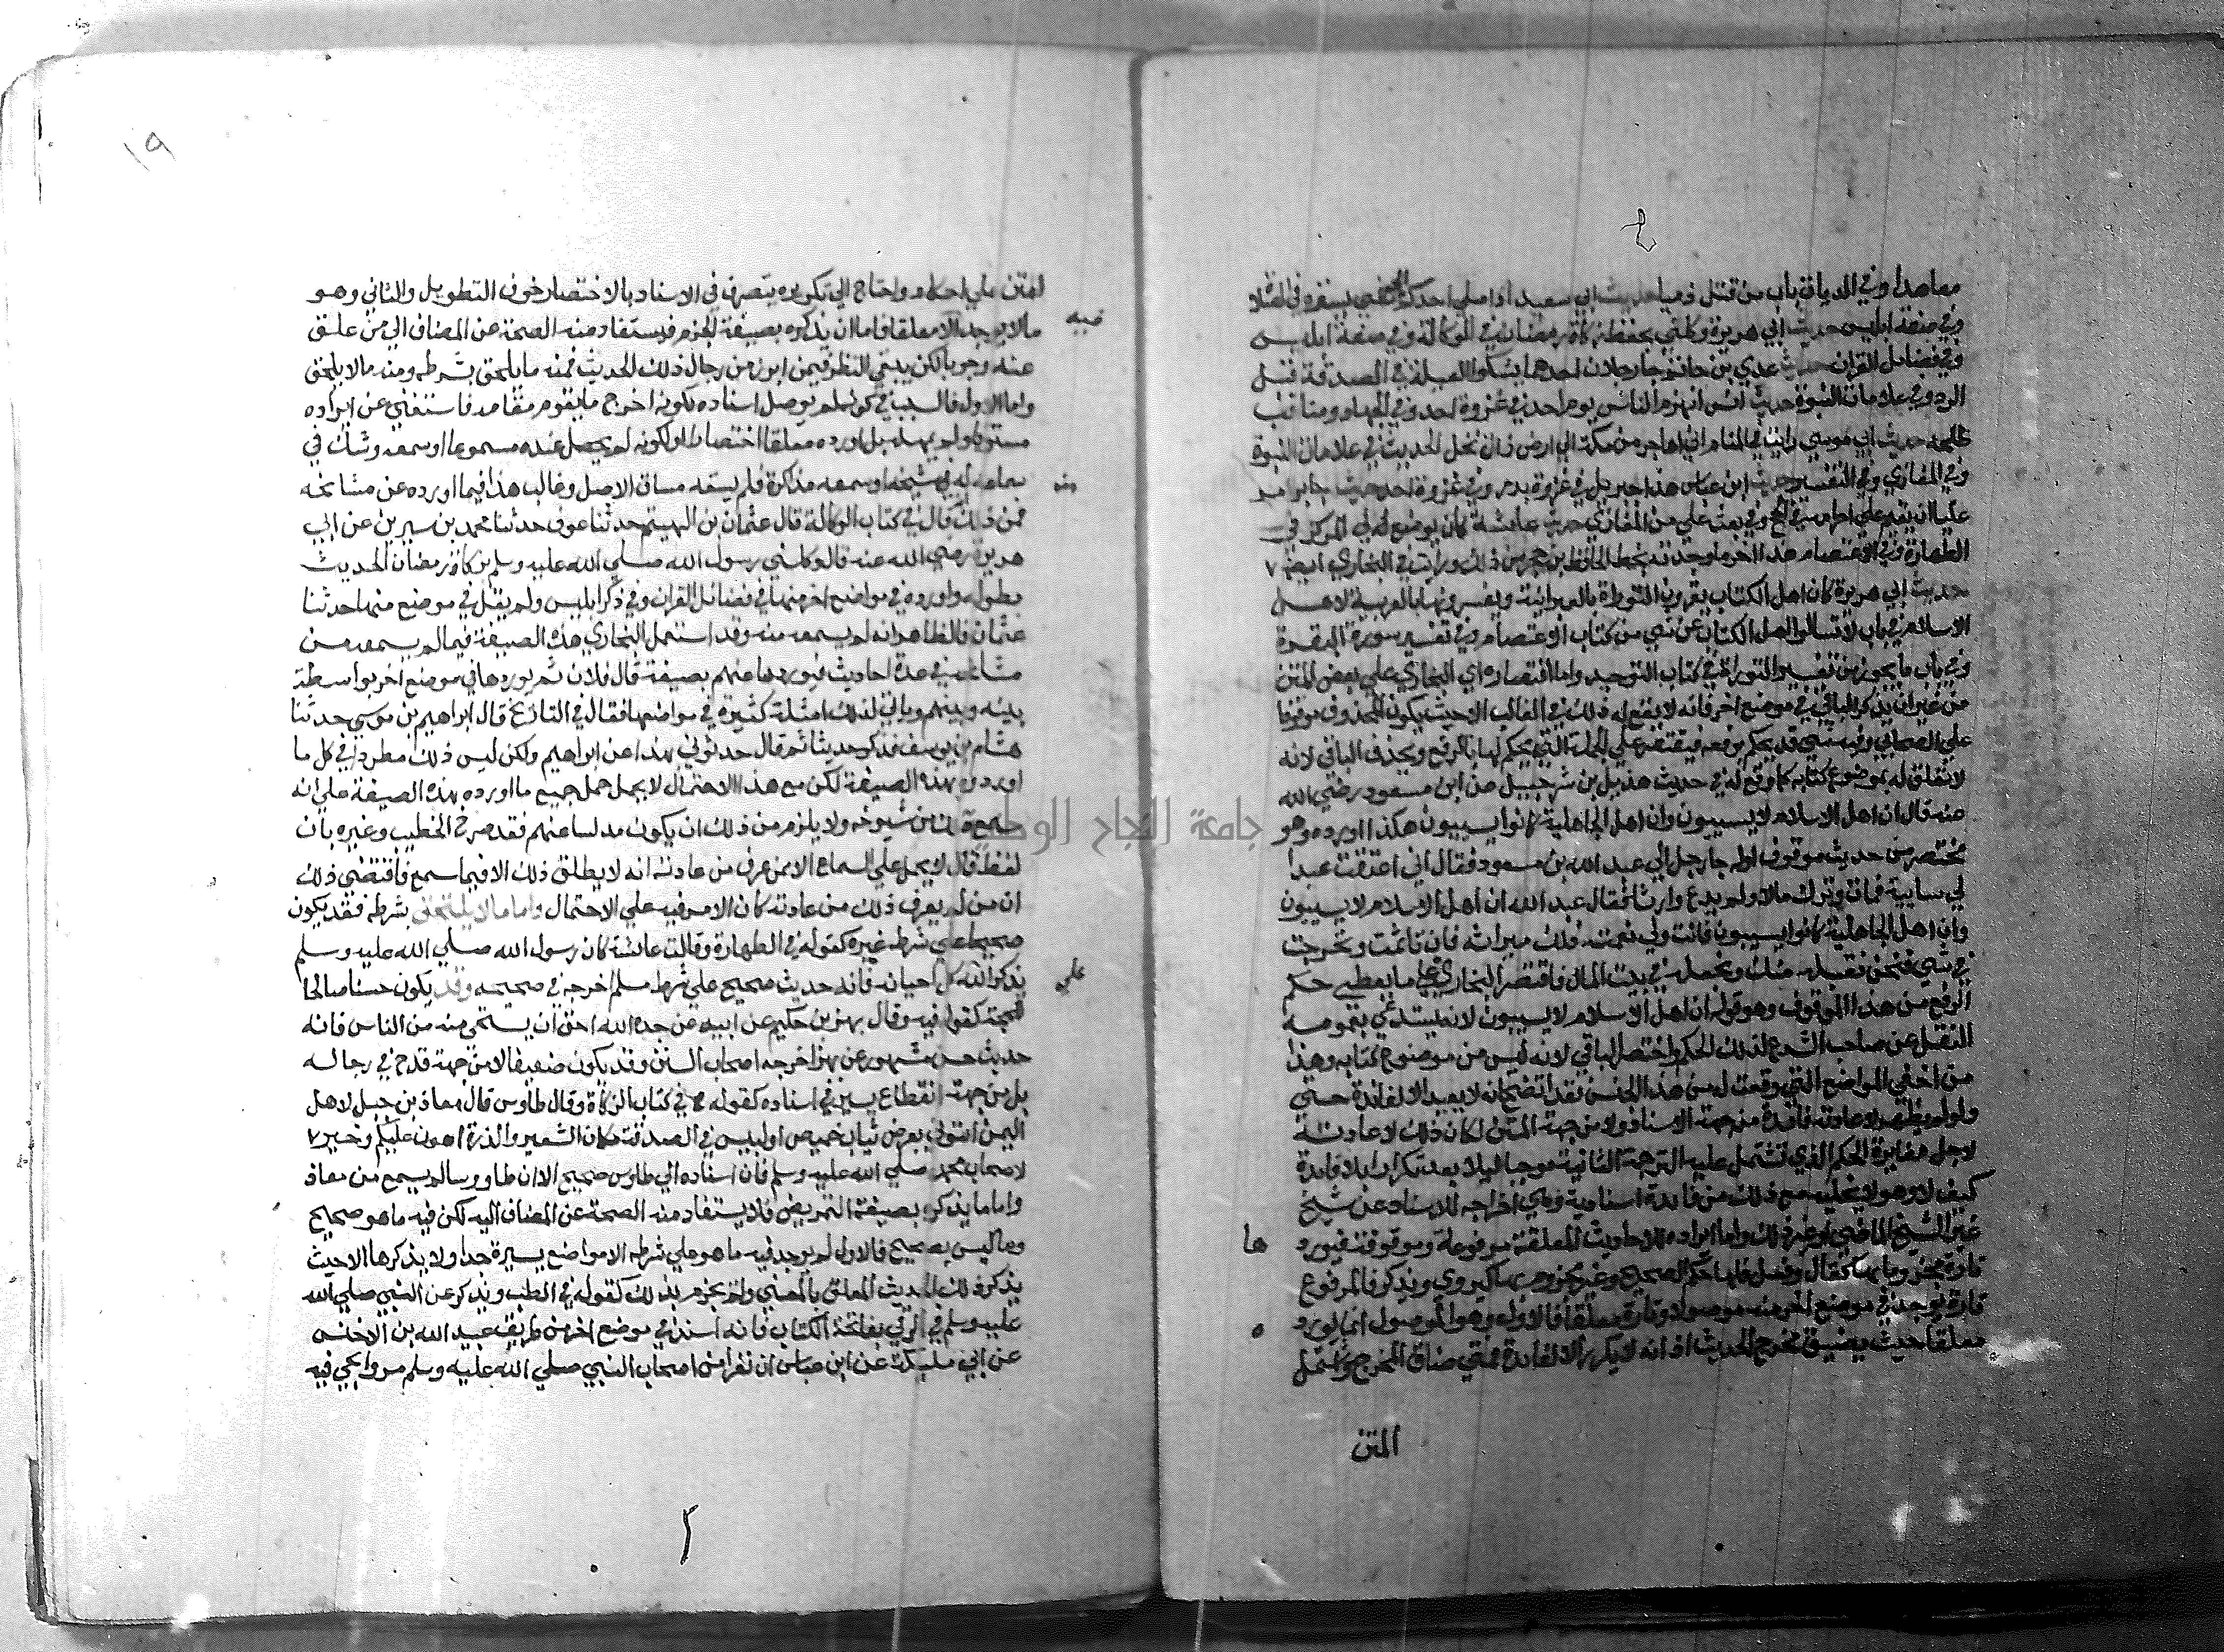 معاهدا وفي الديات باب من قتل ذميا حديث ابي سعيد اذا صلي احدكم الي شي يستره في الصلاة
وفي صفة ابليس حديث ابي هريرة وكلني بحفظ زكاة رمضان في الوكالة وفي صفة ابليس
وفي فضايل القران حديث عدي بن حاتم جا رجلان احدهما يشكوا العيلة في الصدقة قبل
الرد وفي علامات النبوة حديث انس انهزم الناس يوم احد في غزوة احد وفي الجهاد ومناقب
طلحة حديث ابي موسي رايت في المنام اني اهاجر من مكة الي ارض ذات نخل الحديث في علامات النبوة
وفي المغازي وفي التفسير حديث ابن عباس هذا جبريل في غزوة بدر وفي غزوة احد حديث جابر امر
عليا ان يقيم علي احرامه في الحج وفي بعث علي من المغازي حديث عايشة كان يوضع لي المركن في
الطهارة وفي الاعتصام هذا اخر ما وجدته بخط الحافظ بن حجر من ذلك ورايت في البخاري ايضا
حديث ابي هريرة كان اهل الكتاب يقرون التوراة بالعبرانية ويفسرونها بالعربية لاهل
الاسلام في باب لا تسالوا اهل الكتاب عن شي من كتاب الاعتصام وفي تفسير سورة البقرة
وفي باب ما يجوز من تفسير التوراة في كتاب التوحيد واما اقتصاره اي البخاري علي بعض المتن
من غير ان يذكر الباقي في موضع اخر فانه لا يقع له ذلك في الغالب الا حيث يكون المحذوف موقوفا
علي الصحابي وفيه شي قد يحكم برفعه فيقتصر علي الجملة التي يحكم لها بالرفع ويحذف الباقي لانه
لا تعلق له بموضوع كتابه كما وقع له في حديث هذيل بن شرحبيل عن ابن مسعود رضي الله
عنه قال ان اهل الاسلام لا يسيبون وان اهل الجاهلية كانوا يسيبون هكذا اورده وهو
مختصر من حديث موقوف اوله جا رجل الي عبد الله بن مسعود فقال اني اعتقت عبدا
لي سايبة فمات وترك مالا ولم يدع وارثا فقال عبد الله ان اهل الاسلام لا يسيبون
وان اهل الجاهلية كانوا يسيبون فانت ولي نعمته فلك ميراثه فان تاثمت وتحرجت
في شي فنحن نقبله منك ونجعله في بيت المال فاقتصر البخاري علي ما يعطي حكم
الرفع من هذا الموقوف وهو قوله ان اهل الاسلام لا يسيبون لانه يستدعي بعمومه
النقل عن صاحب الشرع لذلك الحكم واختصر الباقي لانه ليس من موضوع كتابه وهذا
من اخفي المواضع التي وقعت له من هذا الجنس فقد اتضح انه لا يعيد الا لفائدة حتي
ولو لم يظهر لاعادته فائدة من جهة الاسناد ولا من جهة المتن لكان ذلك لاعادته
لاجل مغايرة الحكم الذي تشتمل عليه الترجمة الثانية موجبا ليلا يعد تكرارا بلا فايدة
كيف لا وهو لا يخليه مع ذلك من فايدة اسنادية وهي اخراجه للاسناد عن شيخ
غير الشيخ الماضي او غير ذلك واما ايراده للاحاديث المعلقة مرفوعة وموقوفة فيورد
ها
تارة مجزوما بها كقال وفعل فلها حكم الصحيح وغير مجزوم بها كيروي ويذكر فالمرفوع
تارة يوجد في موضع اخر منه موصولا وتارة معلقا فالاول وهو الموصول انما يورد
ه
معلقا حيث يضيق مخرج الحديث اذ انه لا يكرر الا لفائدة فمتي ضاق المخرج واشتمل
المتن
١٩
المتن علي احكام واحتاج الي تكريره يتصرف في الاسناد بالاختصار خوف التطويل والثاني وهو
فيه
ما لا يوجد الا معلقا فاما ان يذكره بصيغة الجزم فيستفاد منه الصحة عن المضاف الي من علق
عنه وجوبا لكن يبقي النظر فيمن ابرز من رجال ذلك الحديث فمنه ما يلحق بشرطه ومنه ما لا يلحق
واما الاول فالسبب في كونه لم يوصل اسناده لكونه اخرج ما يقوم مقامه فاستغني عن ايراده
مستوفا ولم يهمله بل اورده معلقا اختصارا او لكونه لم يحصل عنده مسموعا او سمعه وشك في
سماعه له من شيخه او سمعه مذاكرة فلم يسقه مساق الاصل وغالب هذا فيما اورده عن مشايخه
فمن ذلك قال في كتاب الوكالة قال عثمان بن الهيثم حدثنا عوف حدثنا محمد بن سيرين عن ابي
هريرة رضي الله عنه قال وكلني رسول الله صلي الله عليه وسلم بزكاة رمضان الحديث
بطوله واورده في مواضع اخر منها في فضائل القران وفي ذكر ابليس ولم يقل في موضع منها حدثنا
عثمان فالظاهر انه لم يسمعه منه وقد استعمل البخاري هذه الصيغة فيما لم يسمعه من
مشايخه في عدة احاديث فيوردها عنهم بصيغة قال فلان ثم يوردها في موضع اخر بواسطة
بينه وبينهم وياتي لذلك امثلة كثيرة في مواضعها فقال في التاريخ قال ابراهيم بن موسي حدثنا
هشام بن يوسف فذكر حديثا ثم قال حدثوني بهذا عن ابراهيم ولكن ليس ذلك مطردا في كل ما
اورده بهذه الصيغة لكن مع هذا الاحتمال لا يجمل حمل جميع ما اورده بهذه الصيغة علي انه
سمع ذلك من شيوخه ولا يلزم من ذلك ان يكون مدلسا عنهم فقد صرح الخطيب وغيره بان
لفظ قال لا يحمل علي السماع الا ممن عرف من عادته انه لا يطلق ذلك الا فيما سمع فاقتضي ذلك
ان من لم يعرف ذلك من عادته كان الامر فيه علي الاحتمال واما ما لا يلتحق بشرطه فقد يكون
صحيحا علي شرط غيره كقوله في الطهارة وقالت عائشة كان رسول الله صلي الله عليه وسلم
علي
يذكر الله كل احيانه فانه حديث صحيح علي شرط مسلم اخرجه في صحيحه وقد يكون حسنا صالحا
للحجة كقوله فيه وقال بهز بن حكيم عن ابيه عن جده الله احق ان يستحي منه من الناس فانه
حديث حسن مشهور عن بهز اخرجه اصحاب السنن وقد يكون ضعيفا لا من جهة قدح في رجاله
بل من جهة انقطاع يسير في اسناده كقوله في كتاب الزكاة وقال طاوس قال معاذ بن جبل لاهل
اليمن ايتوني بعرض ثياب خميص او لبيس في الصدقة مكان الشعير والذرة اهون عليكم وخير
لاصحاب محمد صلي الله عليه وسلم فان اسناده الي طاوس صحيح الا ان طاووسا لم يسمع من معاذ
واما ما يذكره بصيغة التمريض فلا يستفاد منه الصحة عن المضاف اليه لكن فيه ما هو صحيح
وما ليس بصحيح فالاول لم يوجد فيه ما هو علي شرطه الا مواضع يسيرة جدا ولا يذكرها الا حيث
يذكر ذلك الحديث المعلق بالمعني ولم يجزم بذلك كقوله في الطب ويذكر عن النبي صلي الله
عليه وسلم في الرقي بفاتحة الكتاب فانه اسنده في موضع اخر من طريق عبيد الله بن الاخنس
عن ابي مليكة عن ابن عباس ان نفرا من اصحاب النبي صلي الله عليه وسلم مروا بحي فيه
جامعة النجاح الوطنية